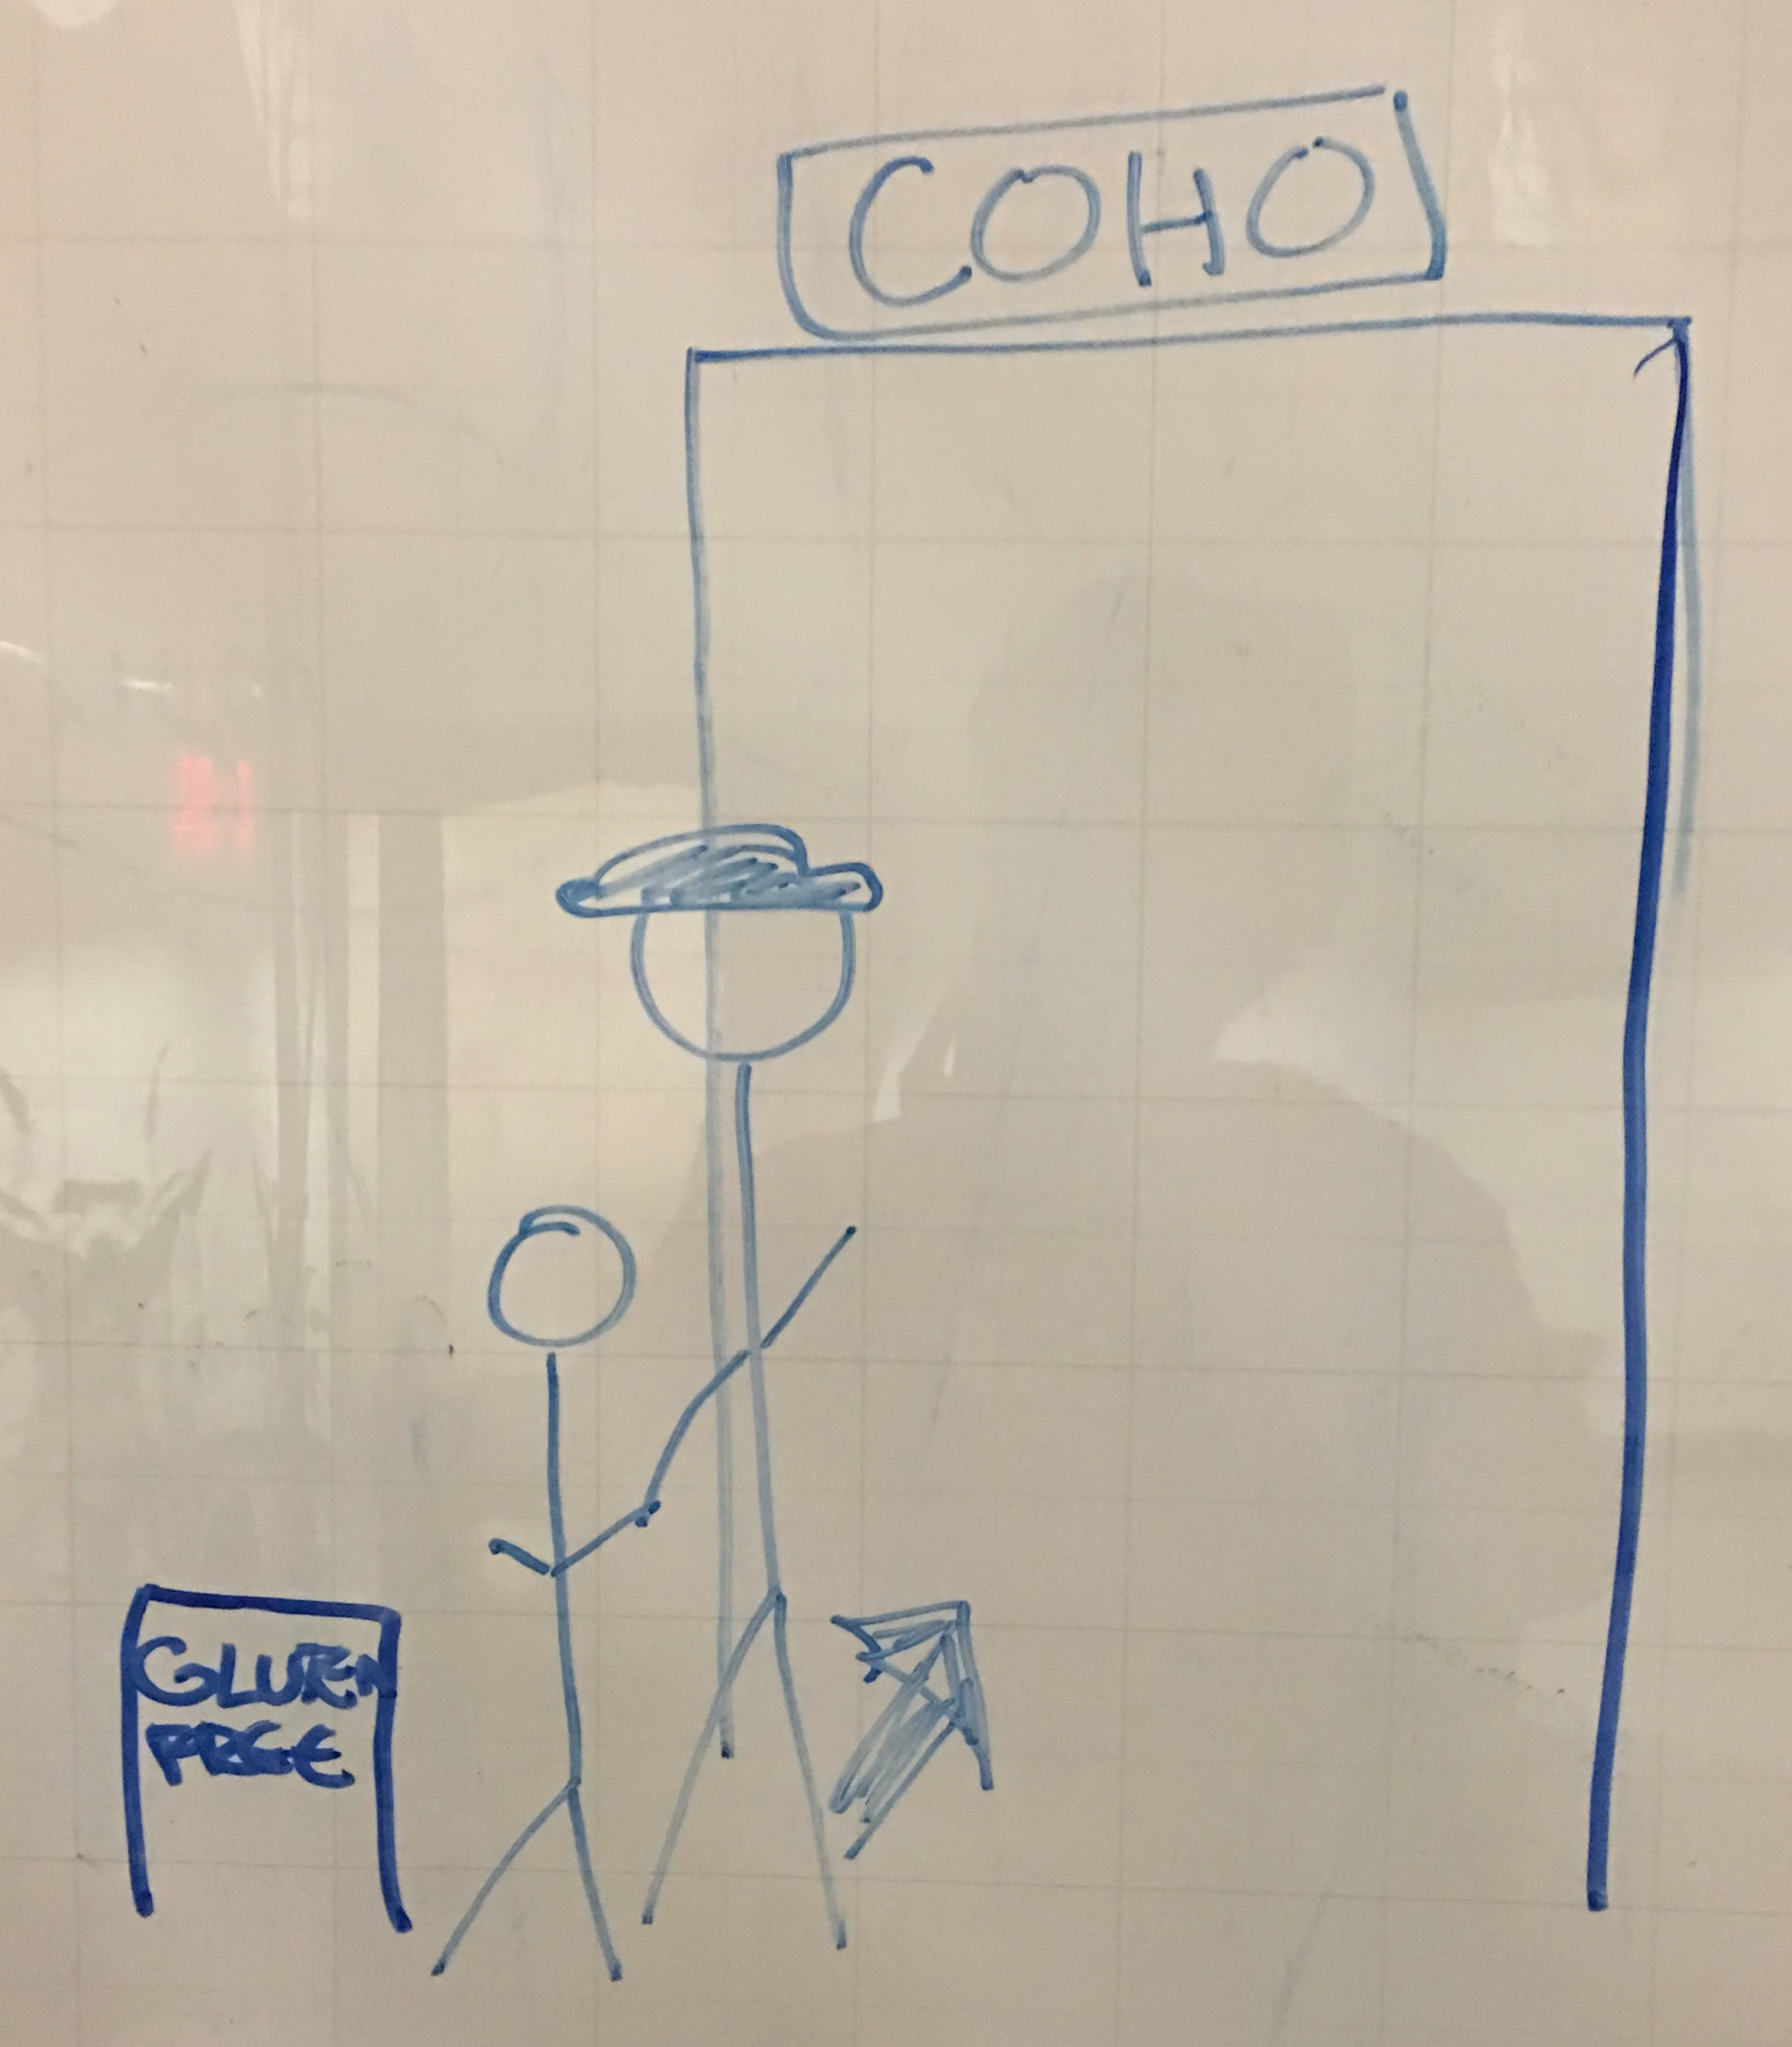 COHO
GLUTEN
FREE